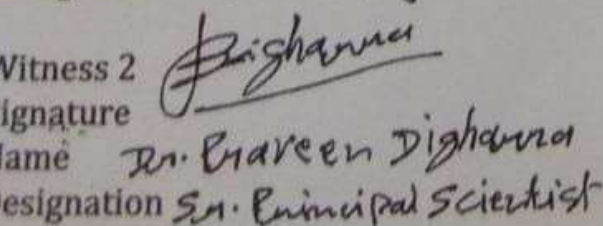 Witness 2 Dighanna
Signature
Name Dr. Praveen Digharra
Designation Sr. Principal Scientist